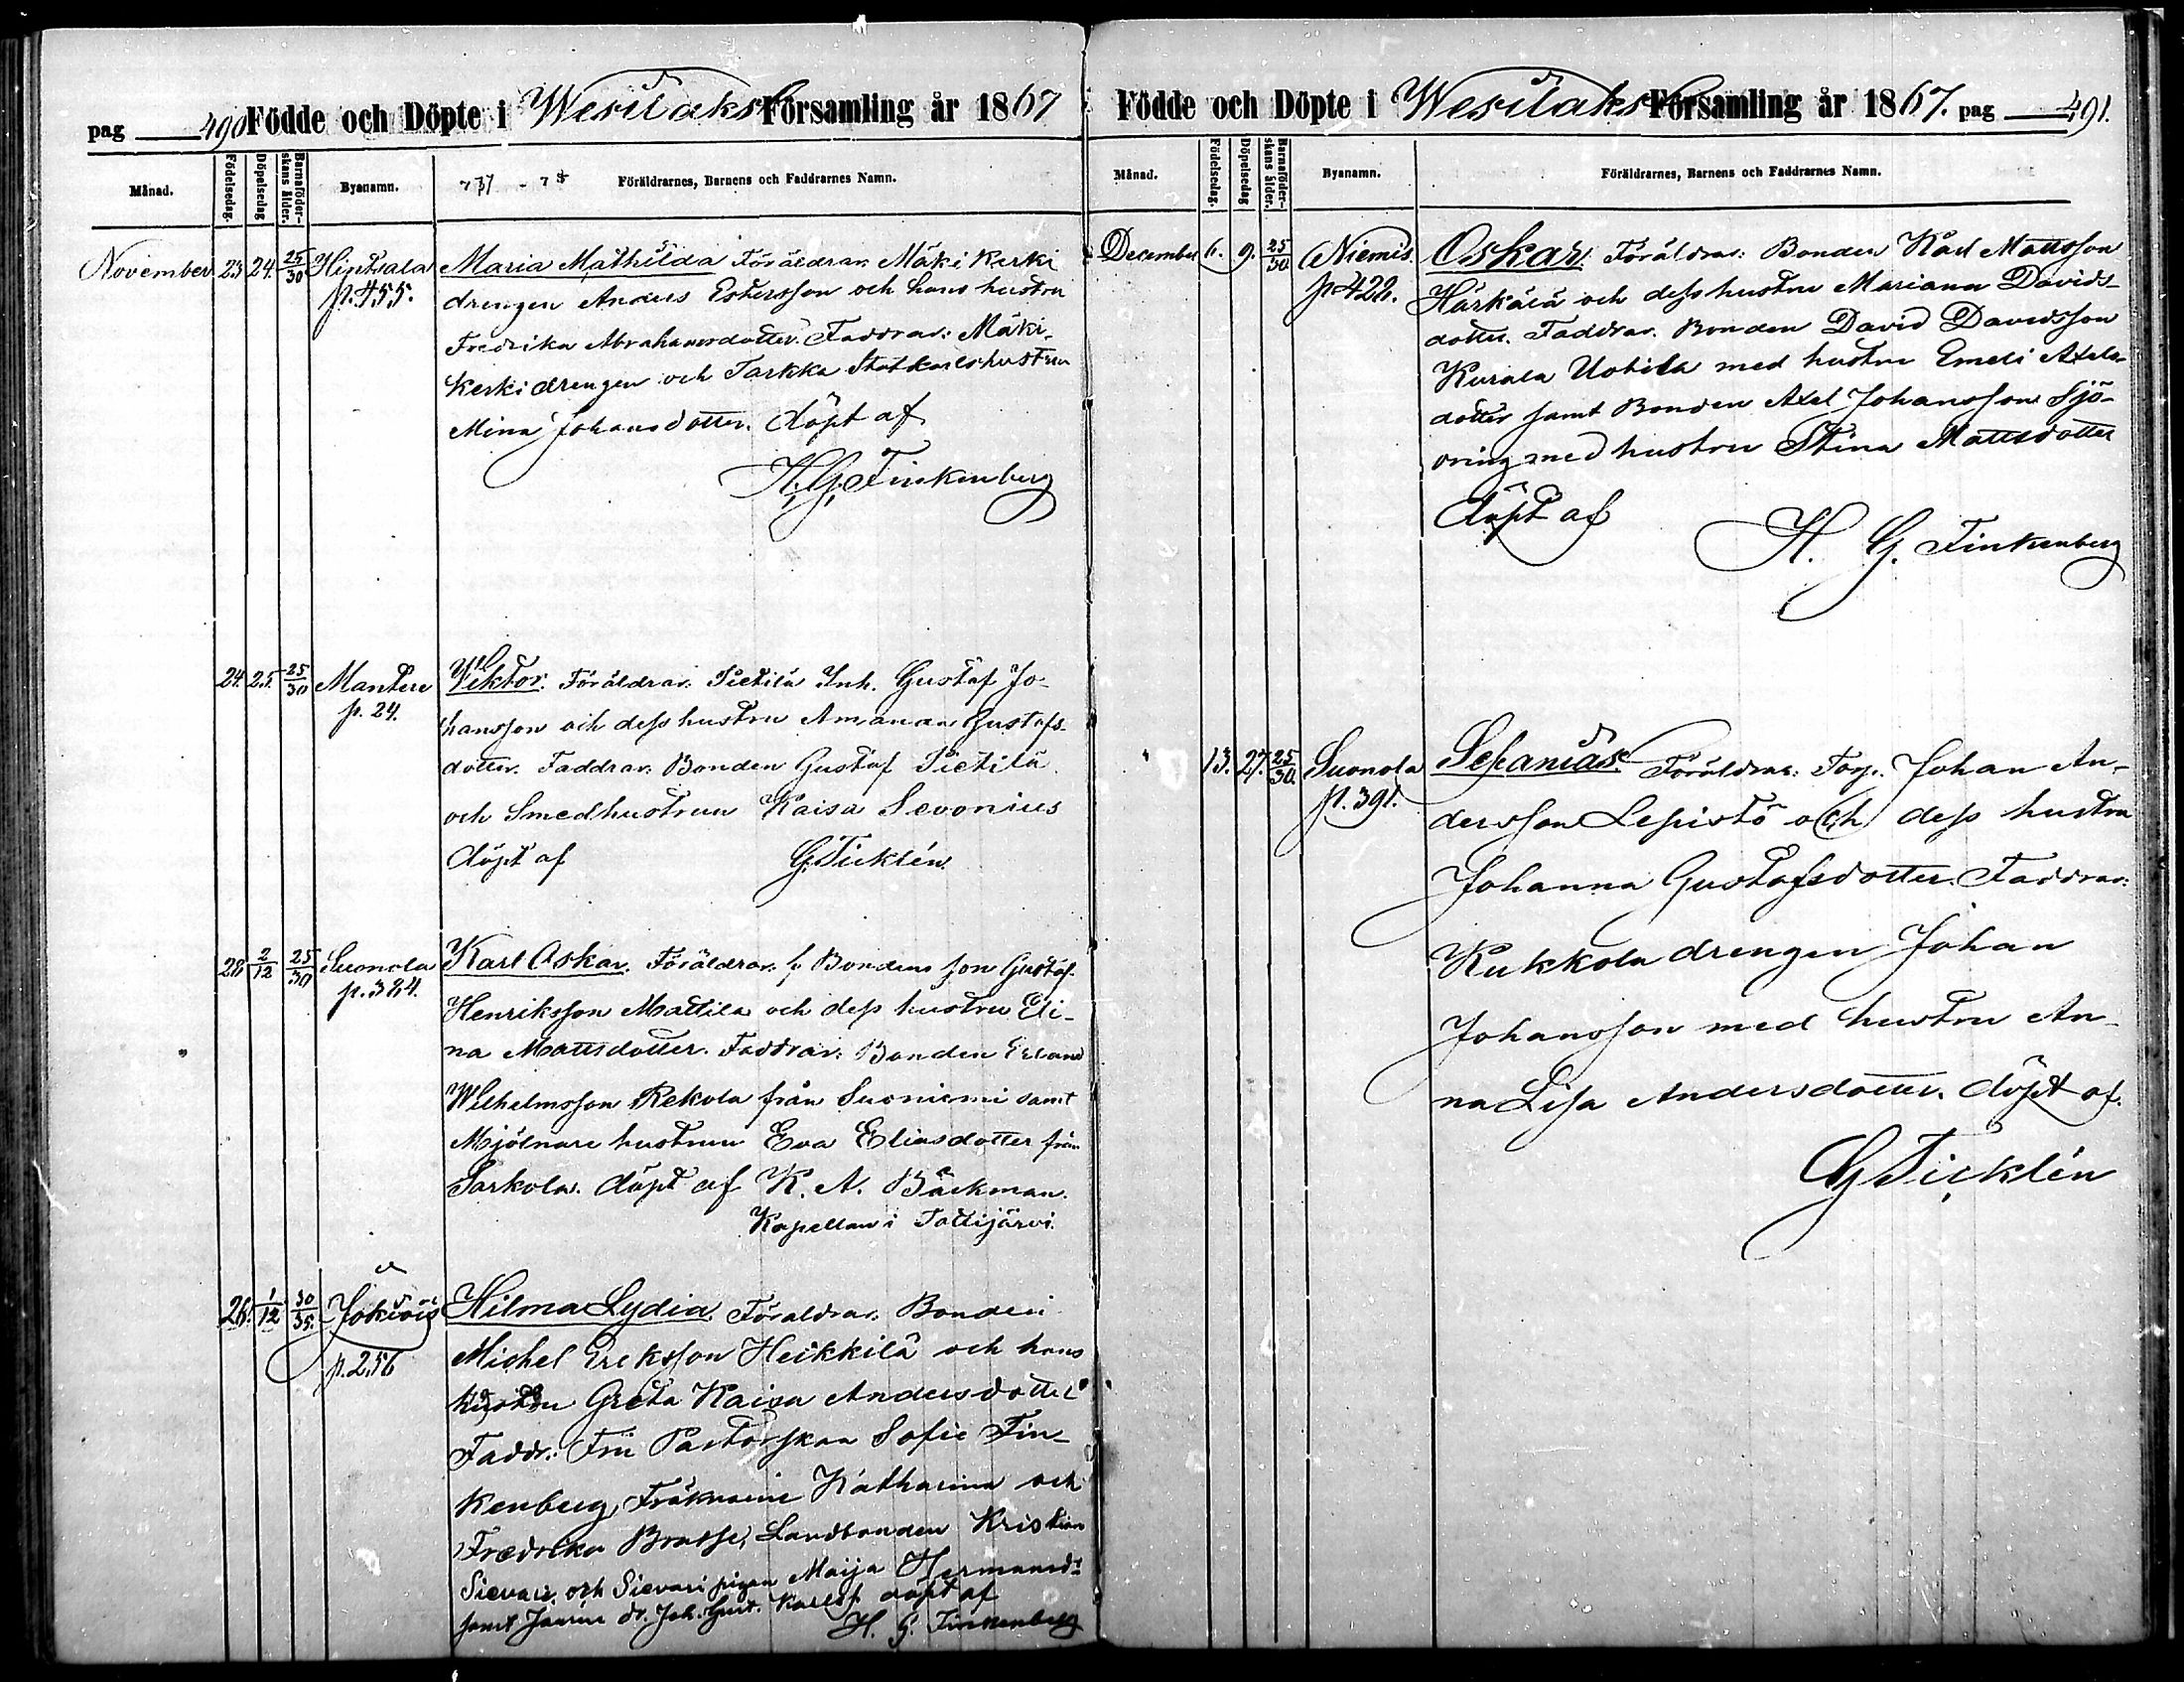 pag 490 Födde och Döpte i Wesilaks Församling år 1867
Månad. Födelsedag. Döpelsedag Barnaföderskans ålder. Byanamn. Föräldrarnes, Barnens och Faddrarnes Namn.
November 23 24. 25/30 Hintsala Maria Mathilda Föräldrar: Mäki Kerki
p. 455. drengen Anders Estersson och hans hustru
Fredrika Abrahamsdotter. Faddrar: Mäki-
Kerki drengen och Tarkka Statkarlshustrun
Mina Johansdotter. döpt af
H. G. Finkenberg
24. 25. 25/30 Mantere Viktor. Föräldrar. Pietilä Inh. Gustaf Jo-
p. 24. hansson och dess hustru Amanda Gustafs-
dotter. Faddrar: Bonden Gustaf Pietilä
och Smedhustrun Kaisa Sevonius
döpt af G. Ticklén.
28 2/12 25/30 Suonola Karl Oskar. Föräldrar: Bondens son Gustaf
p. 384. Henriksson Mattila och dess hustru Eli-
na Mattsdotter. Faddrar: Bonden Erland
Wilhelmsson Rekola från Suoniemi samt
Mjölnare hustrun Eva Eliasdotter från
Sarkola. döpt af K. A. Bäckman.
Kapellan i Tottijärvi.
26. 1/12 30/35. Jokiois Hilma Lydia. Föräldrar. Bonden
p. 256 Michel Ericksson Heikkilä och hans
hustru Greta Kaisa Andersdotter
Faddr.: Fru Pastorskan Sofie Fin-
kenberg, Fröknarne Katharina och
Fredrika Brusse, Landbonden Kristian
Sievari, och Sievari pigan Maija Hermansd:r
samt dr. Joh. Gust. Karlss. döpt af
H. G. Finkenberg
Födde och Döpte i Wesilaks Församling år 1867. pag 491.
Månad. Födelsedag. Döpelsedag Barnaföderskans ålder. Byanamn. Föräldrarnes, Barnens och Faddrarnes Namn.
December 6. 9. 25/30 Niemis. Oskar. Föräldrar: Bonden Karl Mattsson
p. 422. Härkälä och dess hustru Mariana Davids-
dotter. Faddrar. Bonden David Davidsson
Kurala Uotila med hustru Emeli Axels-
dotter samt Bonden Axel Johansson Sjö-
oring med hustru Stina Mattsdotter
döpt af
H. G. Finkenberg
" 13. 27. 25/30. Suonola Sefanias. Föräldrar: Torp. Johan An-
p. 391. dersson Lepistö och dess hustru
Johanna Gustafsdotter. Faddrar:
Kukkola drengen Johan
Johansson med hustru An-
na Lisa Andersdotter. döpt af.
G Ticklén